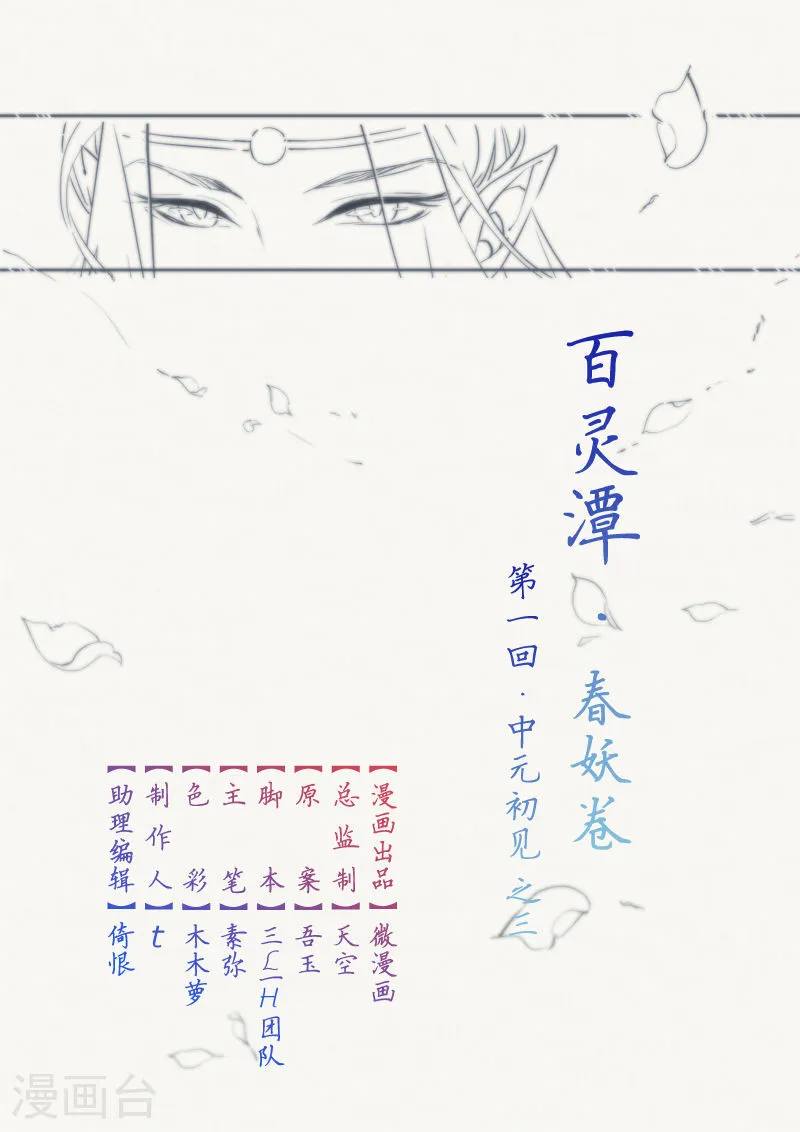 百灵潭·春妖卷
第一回·中元初见 之三
【漫画出品】微漫画
【总监制】天空
【原案】吾玉
【脚本】三乙一H团队
【主笔】素弥
【色彩】木木萝
【制作人】t
【助理编辑】倚恨
漫画台